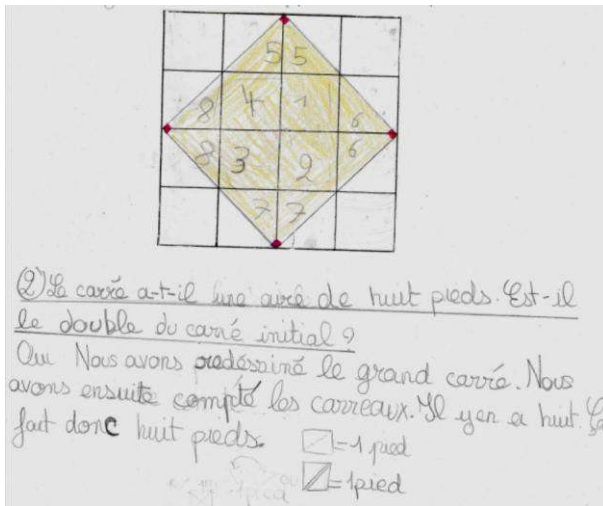 5 5
8 4 1 6
8 3 2 6
7 7
(2) Le carré a-t-il une aire de huit pieds. Est-il
le double du carré initial ?
Oui Nous avons redéssiné le grand carré. Nous
avons ensuite compté les carreaux. Il y en a huit. Ça
fait donc huit pieds.
= 1 pied
ou
= 1 pied